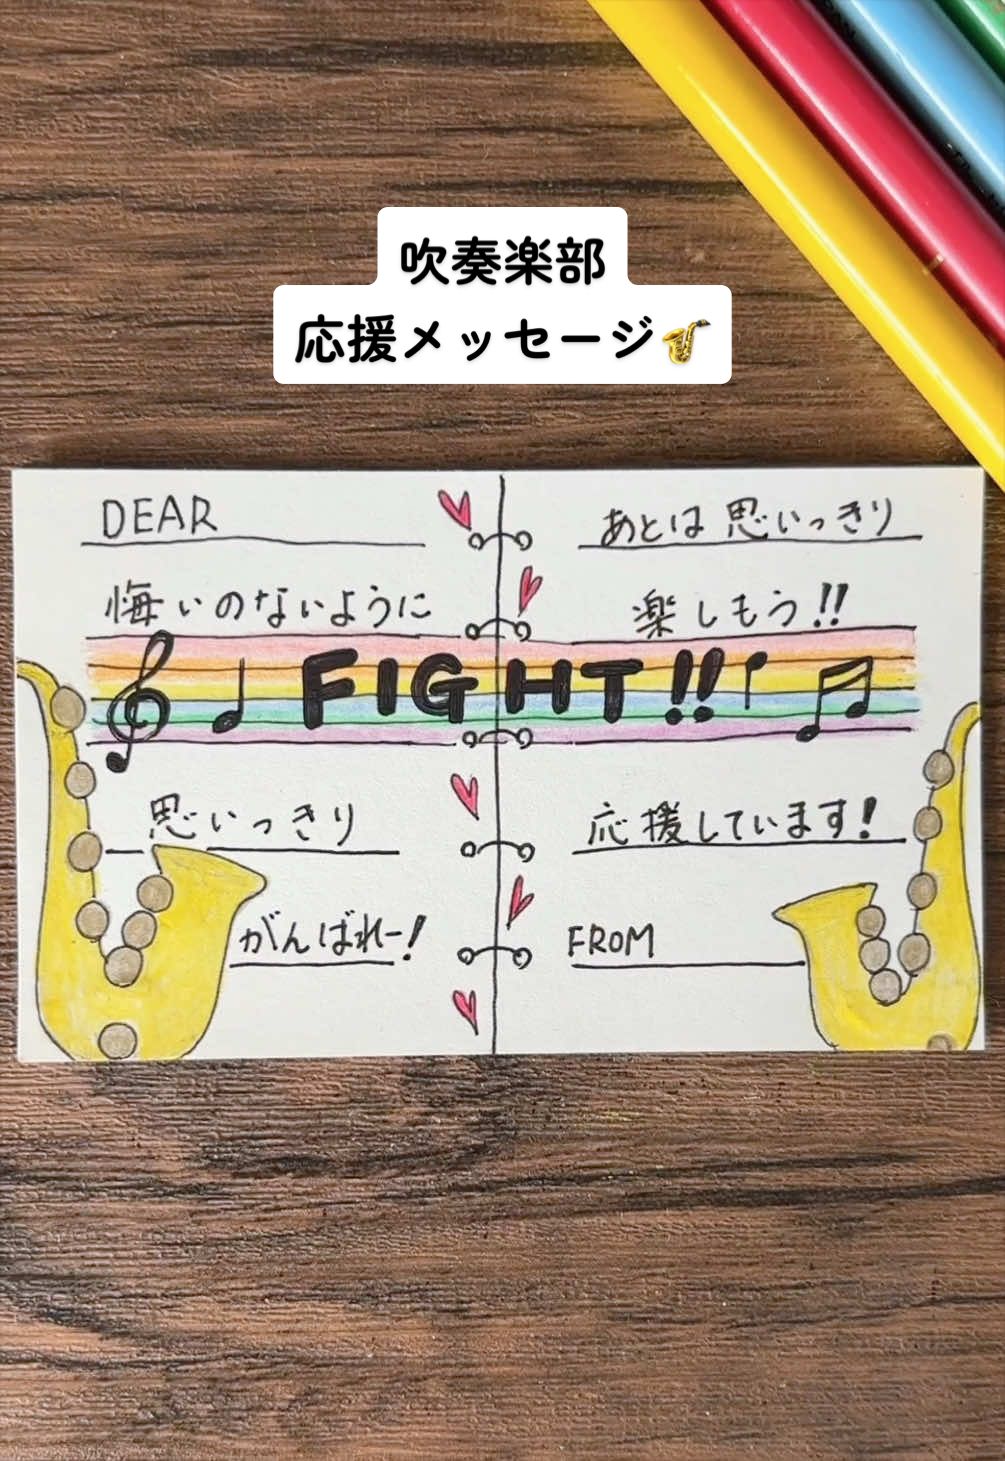 吹奏楽部
応援メッセージ🎷
DEAR
悔いのないように
FIGHT!!
思いっきり
がんばれー!
あとは思いっきり
楽しもう!!
応援しています!
FROM